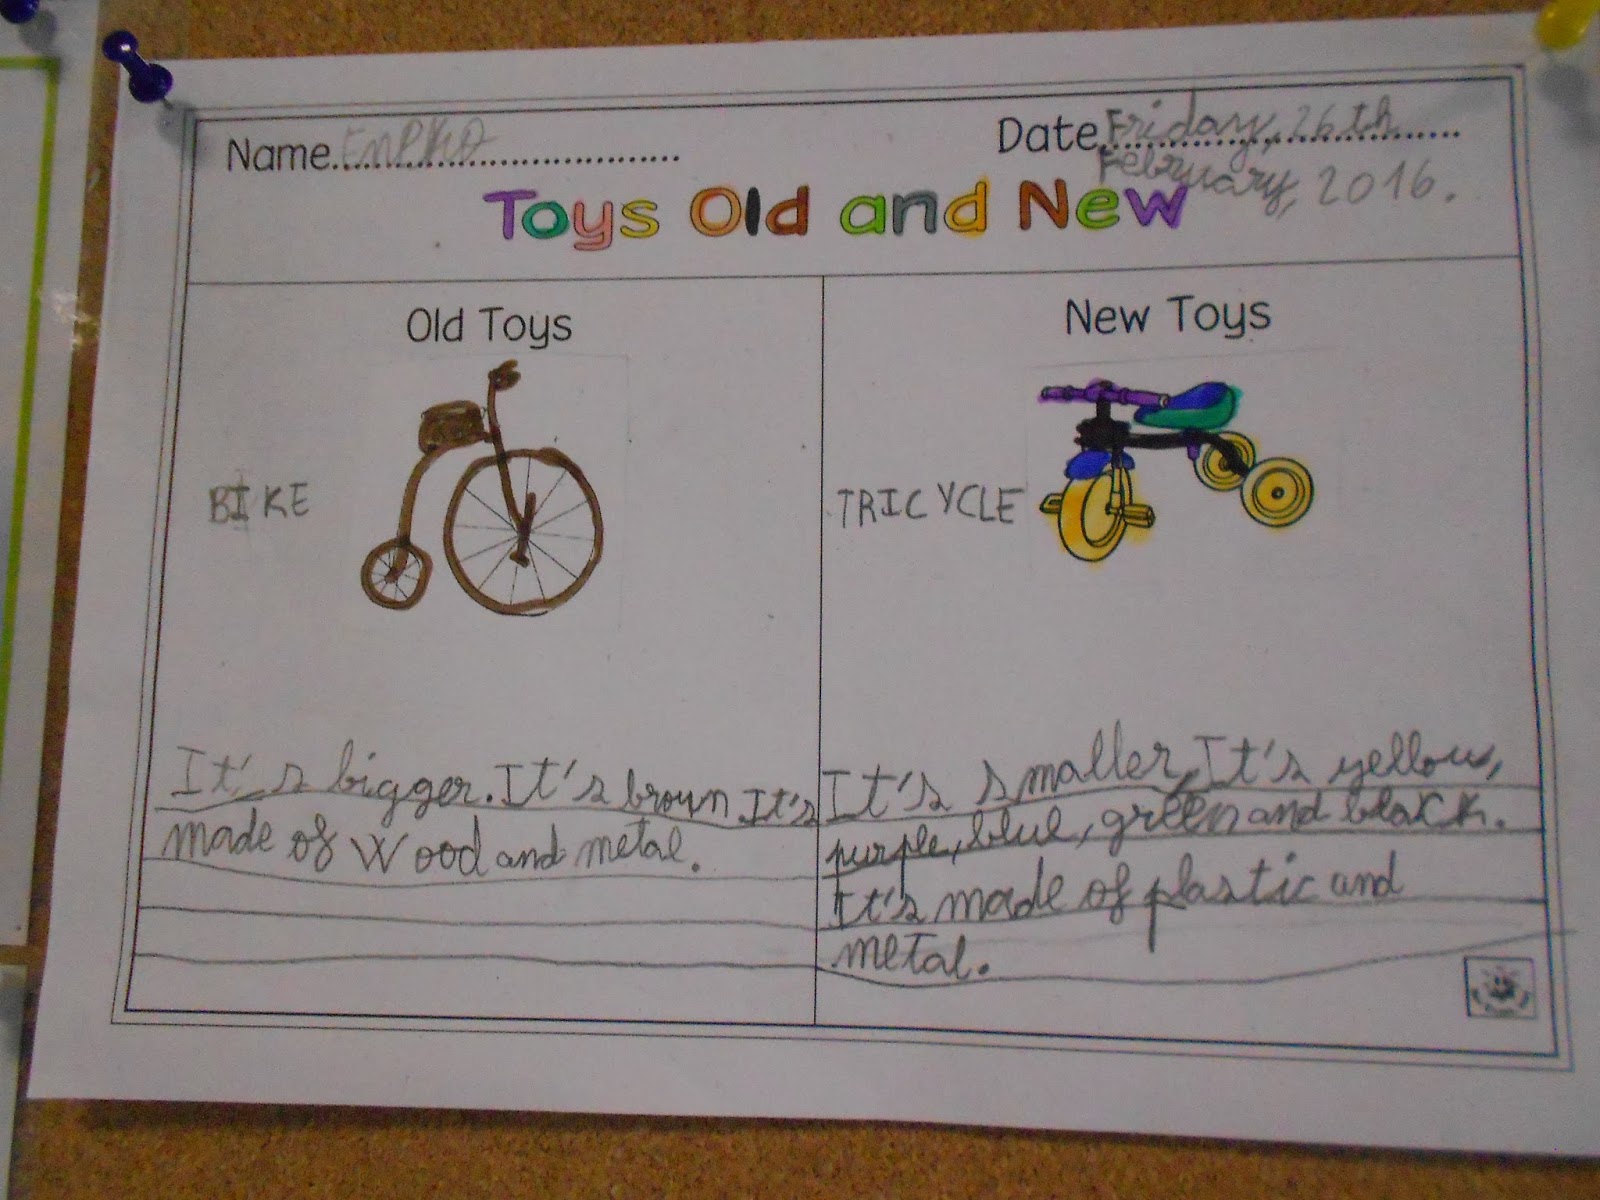 Name
Date Friday, 26th
February, 2016.
Toys Old and New
Old Toys
BIKE
It's bigger. It's brown. It's
made of Wood and metal.
New Toys
TRICYCLE
It's smaller, It's yellow,
purple, blue, green and black.
It's made of plastic and
metal.